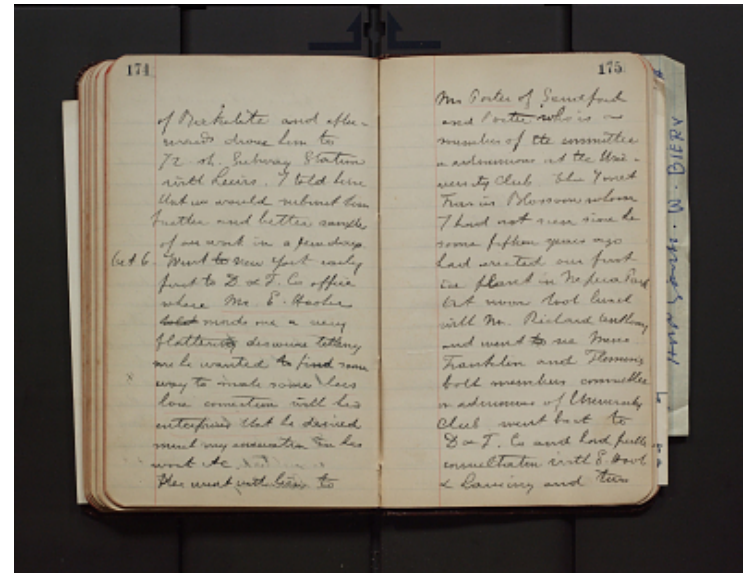 174
of Bakelite and after-
wards drove him to
72 sh. Subway Station
with Lewis. I told him
that we would submit him
further and better samples
of our work in a few days.
Oct 6. Went to New York early
first to D & F. Co office
where Mr. E. Hooker
told made me a very
flattering discourse telling
me he wanted to find some
way to make some less
lose connection with his
enterprises that he desired
much my cooperation in his
work etc.
Then went with to
175
Mr Porter of Sandford
and Porter who is a
member of the committee
n admissions at the Uni-
versity Club. Then I met
Francis Blossom whom
I had not seen since he
some fifteen years ago
had erected our first
ice plant in Nepera Park
At noon took lunch
with Mr. Richard Anthony
and went to see Messrs
Franklin and Flemming
both members committee
n admissions of University
Club went back to
D & F. Co and had further
consultation with E. Hook
& Lansing and
W. BIERY